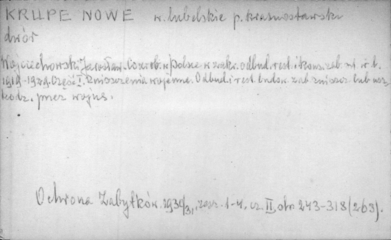 KRUPE NOWE w. lubelskie p. krasnostawski
dwór
Wojciechowski Jarosław. Lo konserw. w Polsce odbud. rest. i konserw. zab. w r. b.
1919-1929. Część I. Zniszczenia wojenne. Odbud. i rest. budow. zab. zniszcz. lub usz
kodz. przez wojnę.
Ochrona Zabytków. 1930/31, zesz. 1-4. cz. II, str. 243-318 (263).